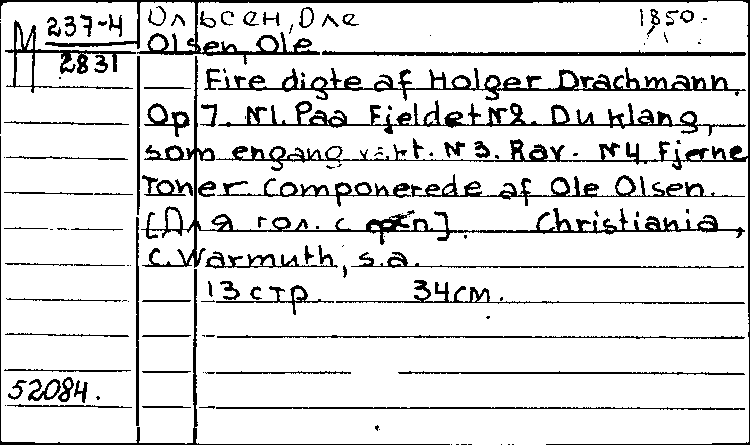 М 237-4
2831
Ольсен, Оле 1850-
Olsen, Ole
Fire digte af Holger Drachmann.
Op 7. N1. Paa Fjeldet N2. Du klang,
som engang N 3. Rav. N4 Fjerne
Toner Componerede af Ole Olsen.
[Для гол. с фп]. Christiania,
C. Warmuth, s.a.
13 стр. 34см.
52084.